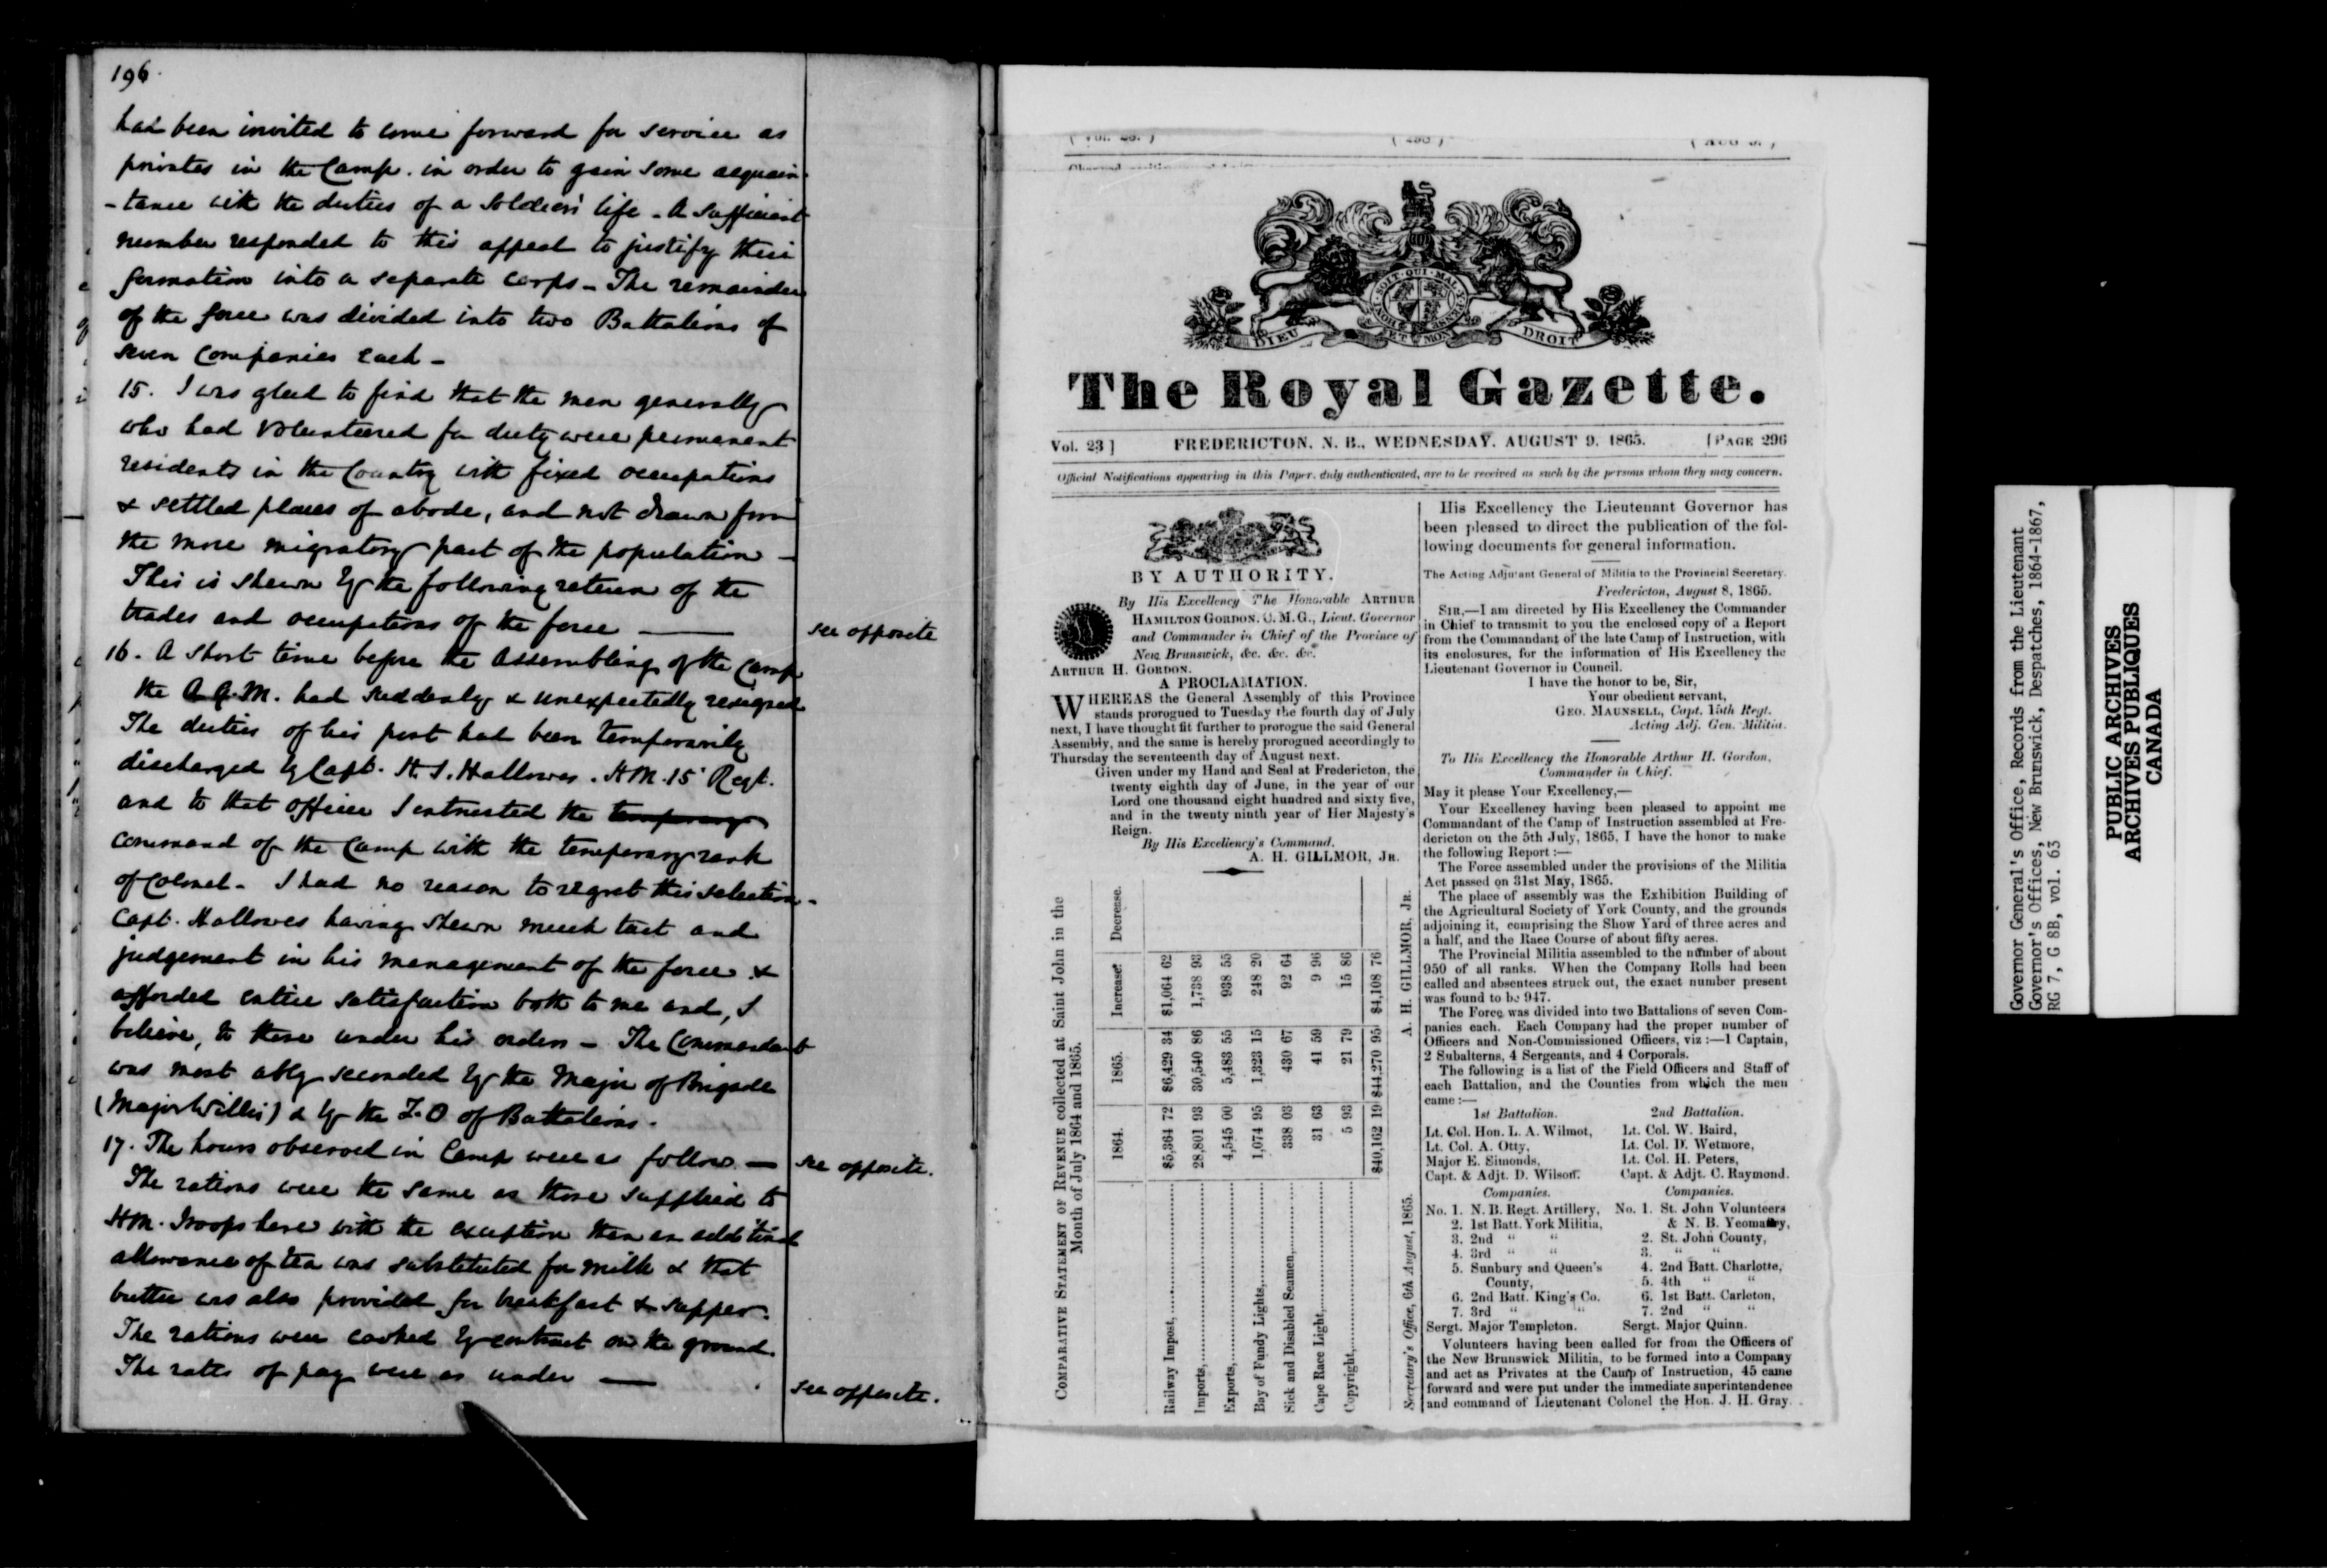 196.
had been invited to come forward for service as
privates in the Camp. in order to gain some acquain-
-tance with the duties of a Soldier's life - A sufficient
number responded to this appeal to justify their
formation into a separate corps - The remainder
of the force was divided into two Battalions of
seven Companies each -
15. I was glad to find that the men generally
who had volunteered for duty were permanent
residents in the Country with fixed occupations
& settled places of abode, and not drawn from
the more migratory part of the population -
This is shewn by the following return of the
trades and occupations of the force —
see opposite
16. A short time before the Assembling of the Camp
the A.G.M. had suddenly & unexpectedly resigned
The duties of his post had been temporarily
discharged by Capt. H. S. Hallowes. H.M. 15 Regt.
and to that officer I entrusted the temporary
command of the Camp with the temporary rank
of Colonel - I had no reason to regret this selection -
Capt. Hallowes having shewn much tact and
judgement in his management of the force &
afforded entire satisfaction both to me and, I
believe, to those under his orders - The Commandant
was most ably seconded by the Major of Brigade
(Major Willis) & by the F.O of Battalions.
17. The hours observed in Camp were as follows —
see opposite.
The rations were the same as those supplied to
H.M. Troops here with the exception than an additional
allowance of tea was substituted for milk & that
butter was also provided for breakfast & supper.
The rations were cooked by contract on the ground.
The rates of pay were as under —
see opposite.
The Royal Gazette.
HONI SOIT QUI MAL Y PENSE
DIEU ET MON DROIT
Vol. 23 ] FREDERICTON, N. B., WEDNESDAY, AUGUST 9, 1865. [PAGE 296
Official Notifications appearing in this Paper, duly authenticated, are to be received as such by the persons whom they may concern.
BY AUTHORITY.
By His Excellency The Honorable ARTHUR
HAMILTON GORDON, C. M. G., Lieut. Governor
and Commander in Chief of the Province of
New Brunswick, &c. &c. &c.
ARTHUR H. GORDON.
A PROCLAMATION.
WHEREAS the General Assembly of this Province
stands prorogued to Tuesday the fourth day of July
next, I have thought fit further to prorogue the said General
Assembly, and the same is hereby prorogued accordingly to
Thursday the seventeenth day of August next.
Given under my Hand and Seal at Fredericton, the
twenty eighth day of June, in the year of our
Lord one thousand eight hundred and sixty five,
and in the twenty ninth year of Her Majesty's
Reign.
By His Excellency's Command.
A. H. GILLMOR, JR.
COMPARATIVE STATEMENT OF REVENUE collected at Saint John in the
Month of July 1864 and 1865.
1864. 1865. Increase. Decrease.
Railway Impost, $5,364 72 $6,429 34 $1,064 62
Imports, 28,801 93 30,540 86 1,738 93
Exports, 4,545 00 5,483 55 938 55
Bay of Fundy Lights, 1,074 95 1,323 15 248 20
Sick and Disabled Seamen, 338 03 430 67 92 64
Cape Race Light, 31 63 41 59 9 96
Copyright, 5 93 21 79 15 86
$40,162 19 $44,270 95 $4,108 76
Secretary's Office, 6th August, 1865. A. H. GILLMOR, JR.
His Excellency the Lieutenant Governor has
been pleased to direct the publication of the fol-
lowing documents for general information.
The Acting Adjutant General of Militia to the Provincial Secretary.
Fredericton, August 8, 1865.
SIR,—I am directed by His Excellency the Commander
in Chief to transmit to you the enclosed copy of a Report
from the Commandant of the late Camp of Instruction, with
its enclosures, for the information of His Excellency the
Lieutenant Governor in Council.
I have the honor to be, Sir,
Your obedient servant,
GEO. MAUNSELL, Capt. 15th Regt.
Acting Adj. Gen. Militia.
To His Excellency the Honorable Arthur H. Gordon,
Commander in Chief.
May it please Your Excellency,—
Your Excellency having been pleased to appoint me
Commandant of the Camp of Instruction assembled at Fre-
dericton on the 5th July, 1865, I have the honor to make
the following Report :—
The Force assembled under the provisions of the Militia
Act passed on 31st May, 1865.
The place of assembly was the Exhibition Building of
the Agricultural Society of York County, and the grounds
adjoining it, comprising the Show Yard of three acres and
a half, and the Race Course of about fifty acres.
The Provincial Militia assembled to the number of about
950 of all ranks. When the Company Rolls had been
called and absentees struck out, the exact number present
was found to be 947.
The Force was divided into two Battalions of seven Com-
panies each. Each Company had the proper number of
Officers and Non-Commissioned Officers, viz :—1 Captain,
2 Subalterns, 4 Sergeants, and 4 Corporals.
The following is a list of the Field Officers and Staff of
each Battalion, and the Counties from which the men
came :—
1st Battalion. 2nd Battalion.
Lt. Col. Hon. L. A. Wilmot, Lt. Col. W. Baird,
Lt. Col. A. Otty, Lt. Col. D. Wetmore,
Major E. Simonds, Lt. Col. H. Peters,
Capt. & Adjt. D. Wilson. Capt. & Adjt. C. Raymond.
Companies. Companies.
No. 1. N. B. Regt. Artillery, No. 1. St. John Volunteers
2. 1st Batt. York Militia, & N. B. Yeomanry,
3. 2nd " " 2. St. John County,
4. 3rd " " 3. " "
5. Sunbury and Queen's 4. 2nd Batt. Charlotte,
County, 5. 4th " "
6. 2nd Batt. King's Co. 6. 1st Batt. Carleton,
7. 3rd " " 7. 2nd " "
Sergt. Major Templeton. Sergt. Major Quinn.
Volunteers having been called for from the Officers of
the New Brunswick Militia, to be formed into a Company
and act as Privates at the Camp of Instruction, 45 came
forward and were put under the immediate superintendence
and command of Lieutenant Colonel the Hon. J. H. Gray.
Governor General's Office, Records from the Lieutenant
Governor's Offices, New Brunswick, Despatches, 1864-1867,
RG 7, G 8B, vol. 63
PUBLIC ARCHIVES
ARCHIVES PUBLIQUES
CANADA